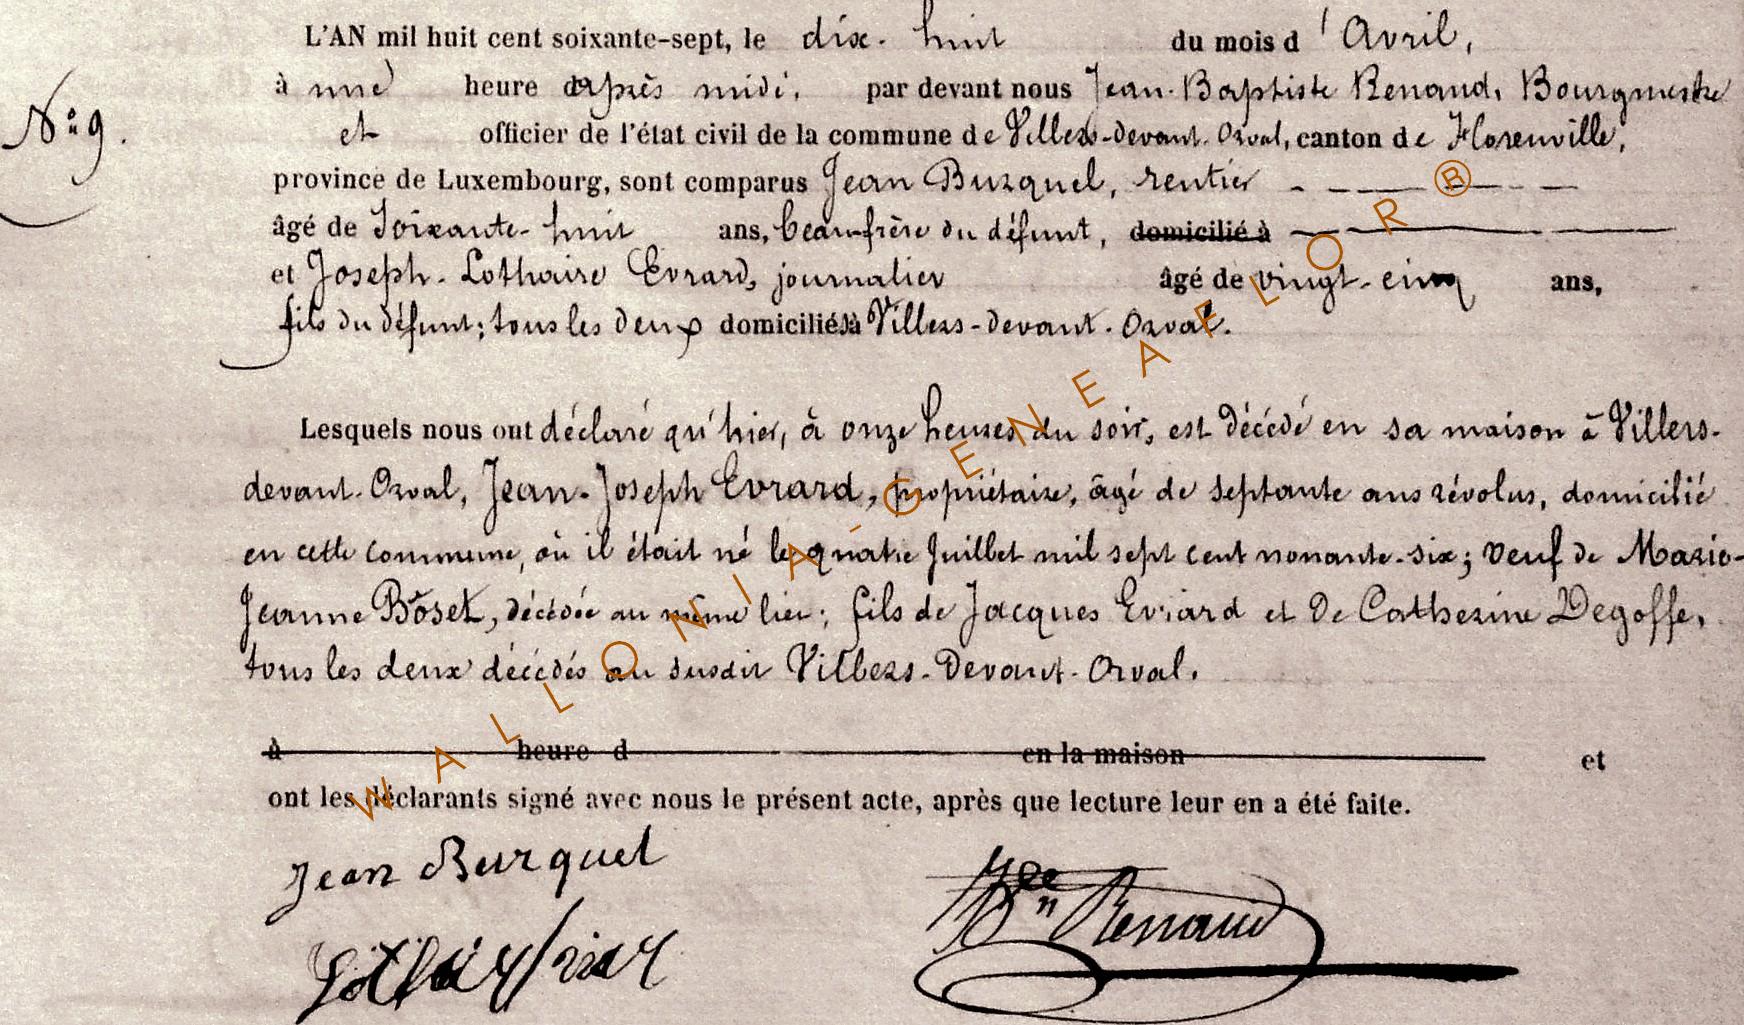 L'AN mil huit cent soixante-sept, le dix-huit du mois d'Avril,
à une heure d'après midi, par devant nous Jean-Baptiste Renaud, Bourgmestre
N° 9.
et officier de l'état civil de la commune de Villers-devant-Orval, canton de Florenville,
province de Luxembourg, sont comparus Jean Burquel, rentier
âgé de Soixante-huit ans, beau-frère du défunt, domicilié à
et Joseph-Lothaire Evrard, journalier âgé de vingt-cinq ans,
fils du défunt; tous les deux domiciliés à Villers-devant-Orval.
Lesquels nous ont déclaré qu'hier, à onze heures du soir, est décédé en sa maison à Villers-
devant-Orval, Jean-Joseph Evrard, propriétaire, âgé de septante ans révolus, domicilié
en cette commune, où il était né le quatre Juillet mil sept cent nonante-six; veuf de Marie-
Jeanne Boset, décédée au même lieu; fils de Jacques Evrard et de Catherine Degoffe,
tous les deux décédés au susdit Villers-Devant-Orval.
à heure d en la maison et
ont les déclarants signé avec nous le présent acte, après que lecture leur en a été faite.
Jean Burquel
Renaud
WALLONIA-GENEAFLOR®